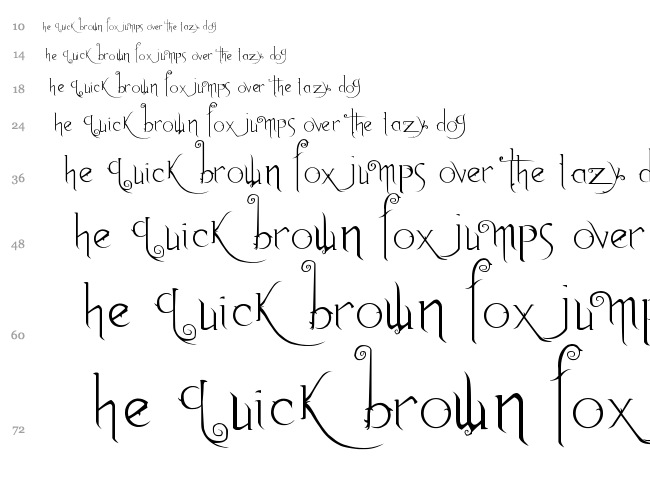 10 he quick brown fox jumps over the lazy dog
14 he quick brown fox jumps over the lazy dog
18 he quick brown fox jumps over the lazy dog
24 he quick brown fox jumps over the lazy dog
36 he quick brown fox jumps over the lazy d
48 he quick brown fox jumps over
60 he quick brown fox jump
72 he quick brown fox